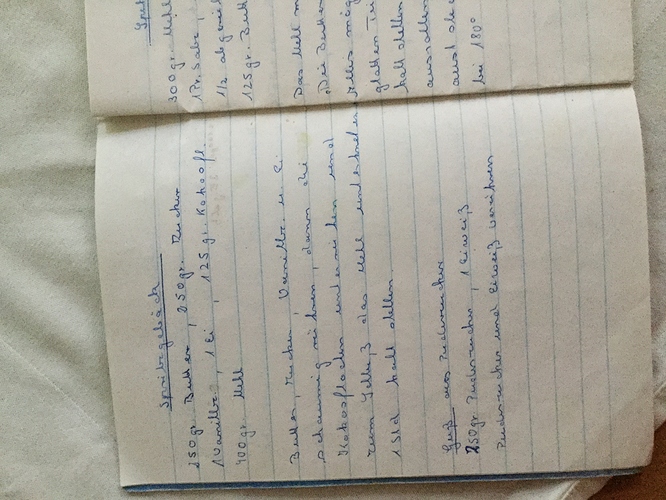 Spritzgebäck
250gr. Butter, 250gr. Zucker
1 Vanillz., 1 Ei, 125gr. Kokosfl.
400gr. Mehl
Butter, Zucker, Vanillz. u. Ei
schaumig rühren, dann die
Kokosflocken unterrühren und
zum Schluß das Mehl unterkneten
1 Std kalt stellen
Guß aus Puderzucker
250gr. Puderzucker, 1 Eiweiß
Puderzucker und Eiweiß verrühren
300gr. Mehl
1 Pr. Salz,
1/2 abgerieb
125gr. Butt
Das Mehl m
Die Butter
alles
glatten
kalt stellen
ausrollen
bei 180°